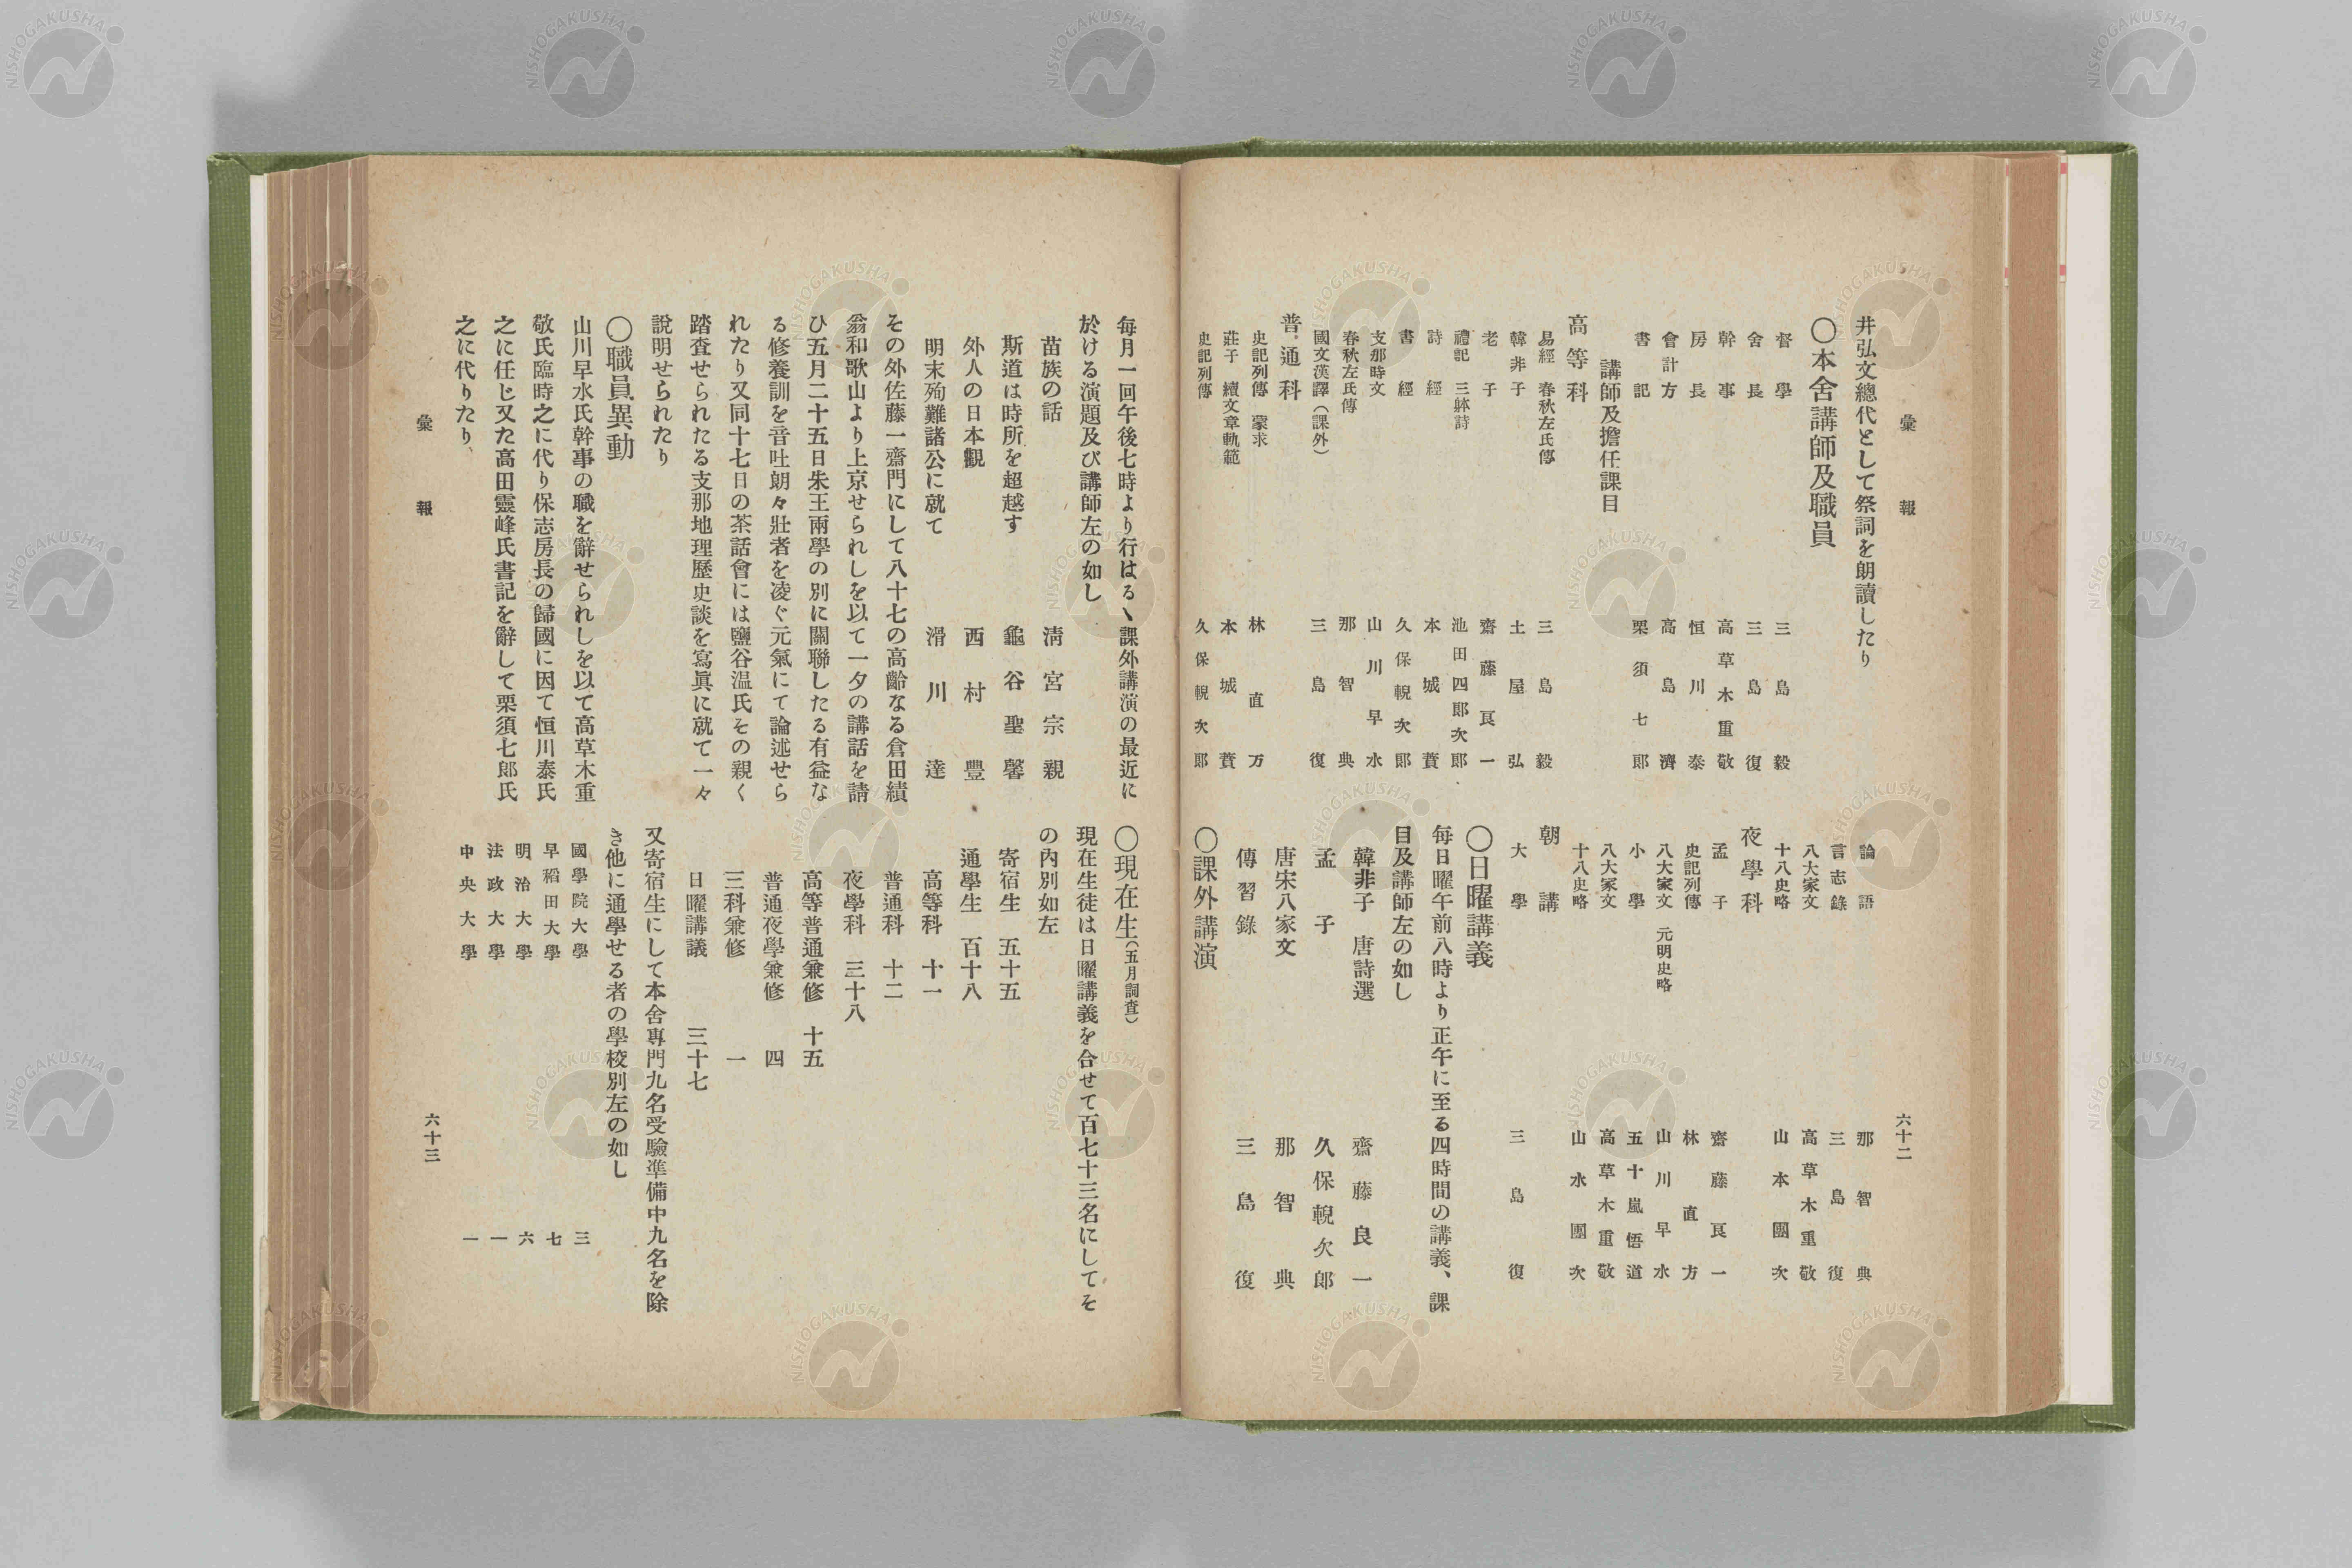 彙報
六十二
井弘文總代として祭詞を朗讀したり
〇本舍講師及職員
督學 三島毅
舍長 三島復
幹事 高草木重敬
房長 恒川泰
會計方 高島濟
書記 栗須七郎
講師及擔任課目
高等科
易經 春秋左氏傳 三島毅
韓非子 土屋弘
老子 齋藤良一
禮記 三躰詩 池田四郎次郎
詩經 本城蕡
書經 久保輗次郎
支那時文 山川早水
春秋左氏傳 那智典
國文漢譯(課外) 三島復
普通科
史記列傳 蒙求 林直方
莊子 續文章軌範 本城蕡
史記列傳 久保輗次郎
論語 那智典
言志錄 三島復
八大家文 高草木重敬
十八史略 山本團次
夜學科
孟子 齋藤良一
史記列傳 林直方
八大家文 元明史略 山川早水
小學 五十嵐悟道
八大家文 高草木重敬
十八史略 山水團次
朝講
大學 三島復
〇日曜講義
毎日曜午前八時より正午に至る四時間の講義、課
目及講師左の如し
韓非子 唐詩選 齋藤良一
孟子 久保輗次郎
唐宋八家文 那智典
傳習錄 三島復
〇課外講演
毎月一回午後七時より行はるヽ課外講演の最近に
於ける演題及び講師左の如し
苗族の話 淸宮宗親
斯道は時所を超越す 龜谷聖馨
外人の日本觀 西村豐
明末殉難諸公に就て 滑川達
その外佐藤一齋門にして八十七の高齡なる倉田績
翁和歌山より上京せられしを以て一夕の講話を請
ひ五月二十五日朱王兩學の別に關聯したる有益な
る修養訓を音吐朗々壯者を凌ぐ元氣にて論述せら
れたり又同十七日の茶話會には鹽谷温氏その親く
踏査せられたる支那地理歷史談を寫眞に就て一々
說明せられたり
〇職員異動
山川早水氏幹事の職を辭せられしを以て高草木重
敬氏臨時之に代り保志房長の歸國に因て恒川泰氏
之に任じ又た高田靈峰氏書記を辭して栗須七郎氏
之に代りたり、
〇現在生(五月調査)
現在生徒は日曜講義を合せて百七十三名にしてそ
の内別如左
寄宿生 五十五
通學生 百十八
高等科 十一
普通科 十二
夜學科 三十八
高等普通兼修 十五
普通夜學兼修 四
三科兼修 一
日曜講議 三十七
又寄宿生にして本舍專門九名受驗準備中九名を除
き他に通學せる者の學校別左の如し
國學院大學 三
早稻田大學 七
明治大學 六
法政大學 一
中央大學 一
彙報
六十三